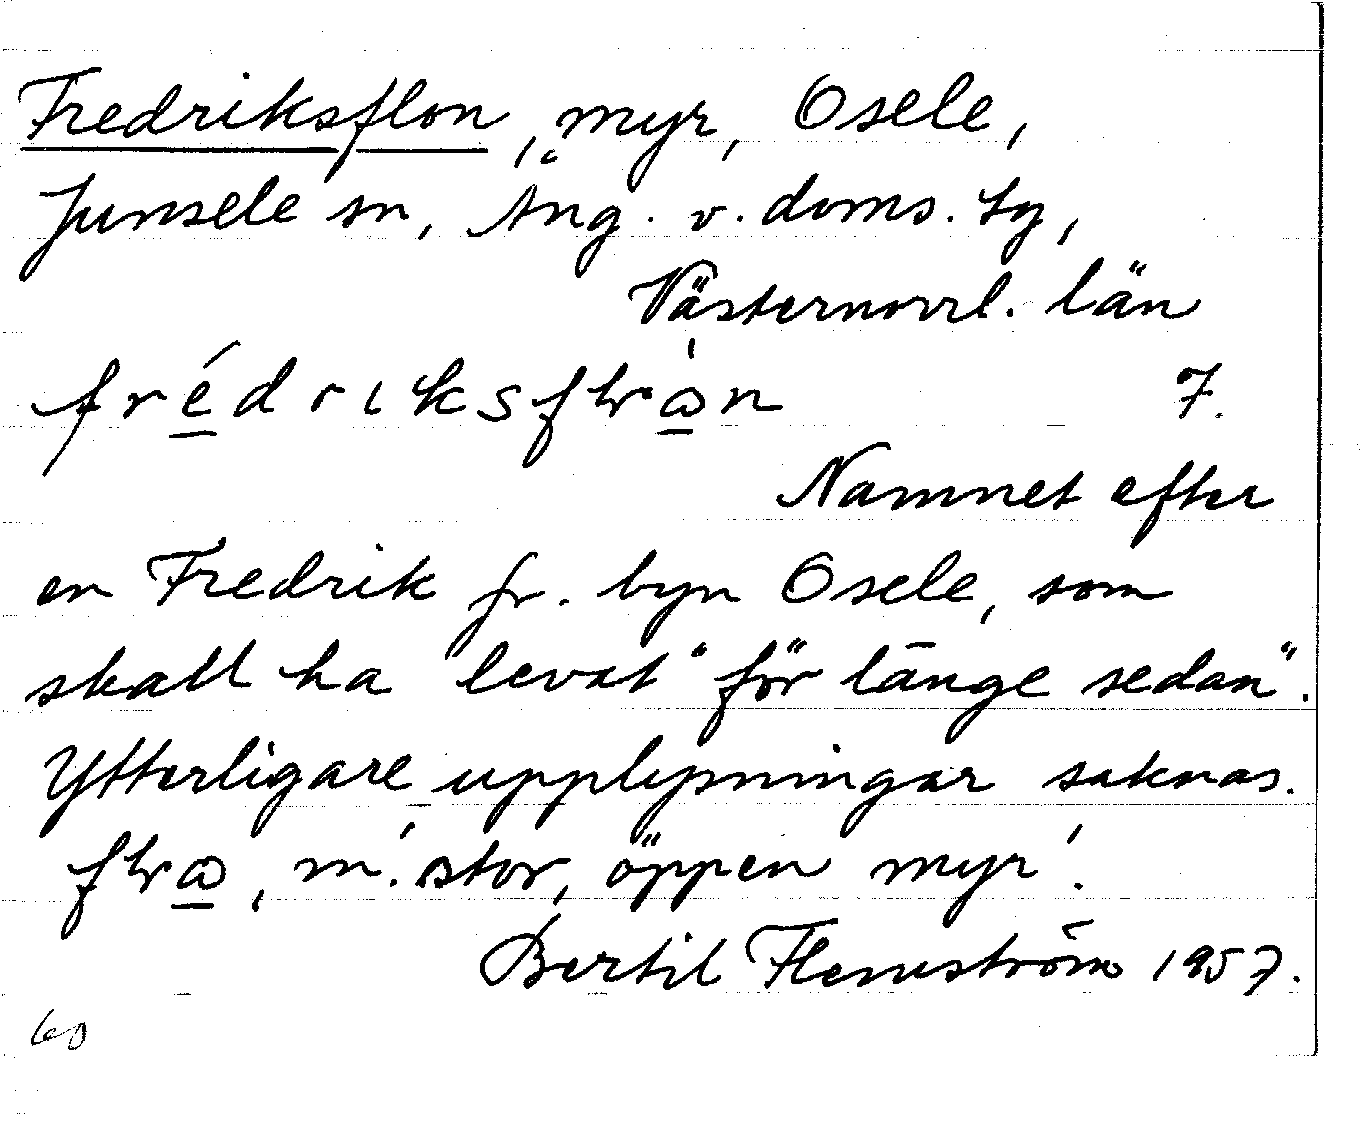 Fredriksflon, myr, Osele,
Junsele sn, Ång. v. doms. sg,
Västernorrl. län
7.
Namnet efter
en Fredrik fr. byn Osele, som
skall ha levat "för länge sedan".
Ytterligare upplysningar saknas.
m. 'stor, öppen myr'.
Bertil Flemström 1957.
60